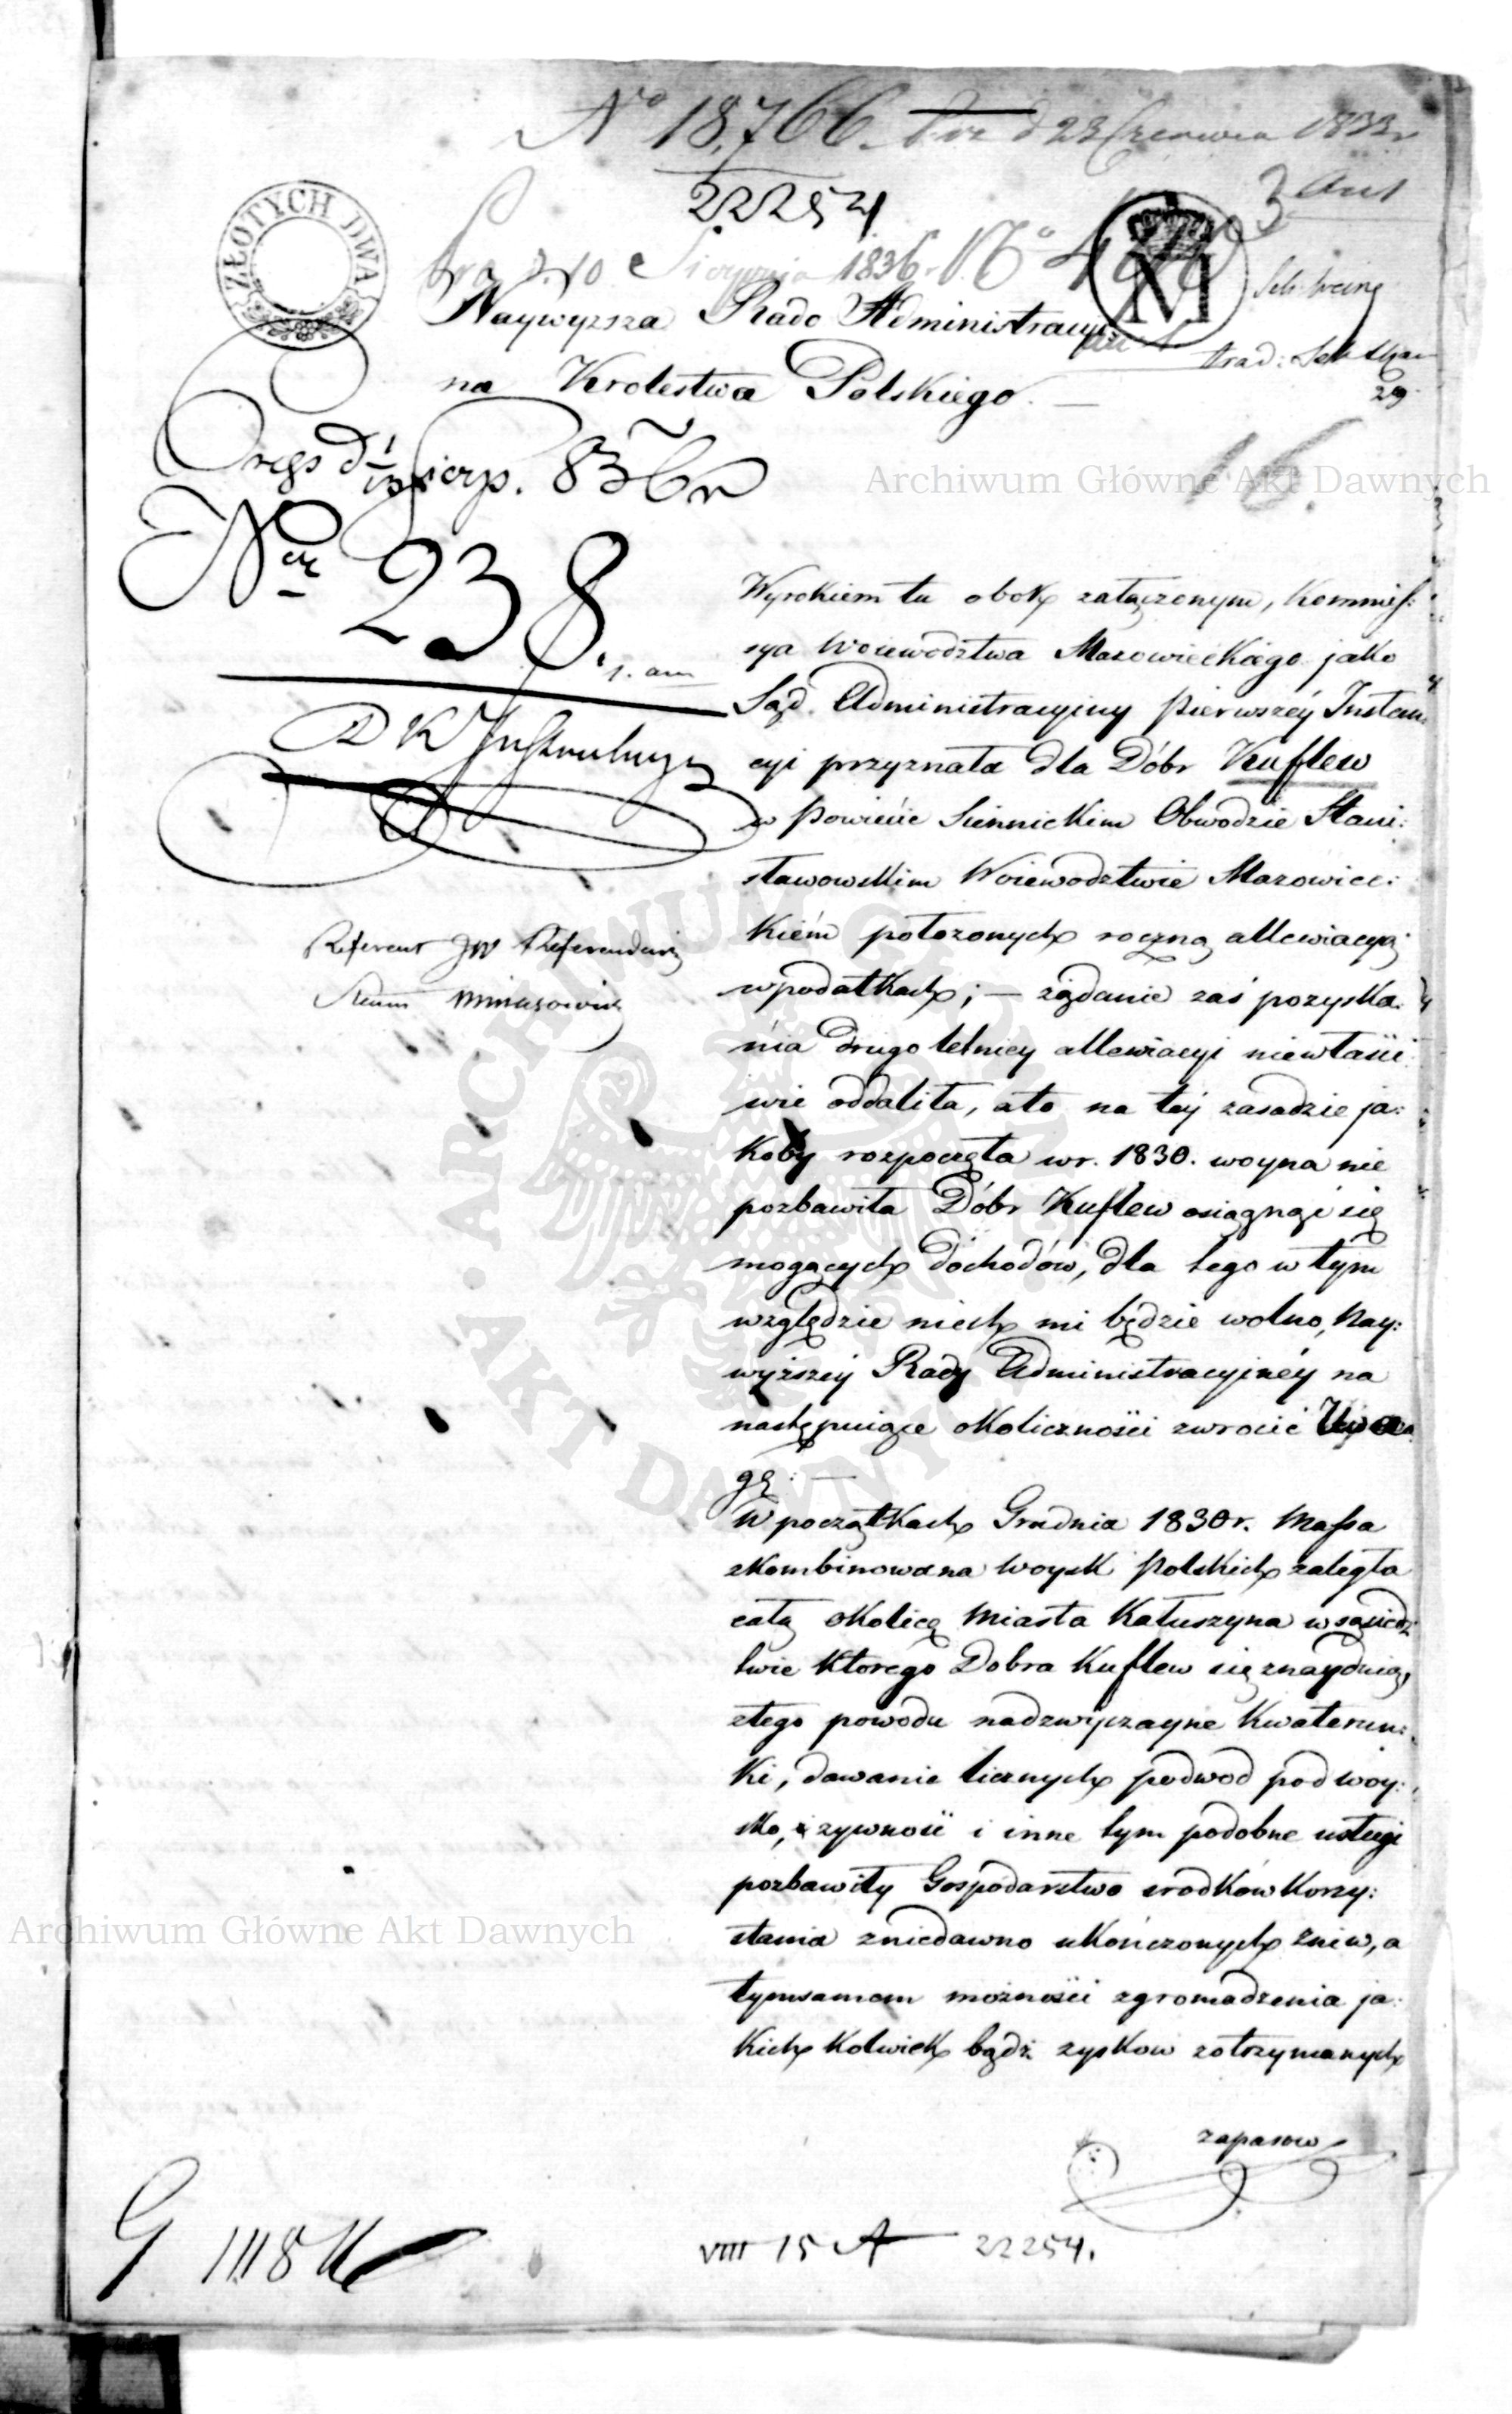 No 18,766. d 23 Czerwca 1833r
22254
3 Aut
ZŁOTYCH DWA
Sierpnia 1836r. No
Naywyzsza Rado Administracyi:
na Krolestwa Polskiego. —
29.
16.
Archiwum Główne Akt Dawnych
sierp. 836r
Nr 238.
Referent JW Referendarz
Stanu
Wyrokiem tu obok załączonym, Kommis:
sya Woiewodztwa Mazowieckiego jako
Sąd Administracyiny Pierwszéy Instan:
cyi przyznała dla Dóbr Kuflew
w Powiecie Siennickim Obwodzie Stani:
sławowskim Woiewodztwie Mazowiec:
kiém położonych roczną allewiacyą
w podatkach; — żądanie zaś pozyska:
nia drugoletniey allewiacyi niewłaści:
wie oddaliła, a to na téy zasadzie ja:
koby rozpoczęta w r. 1830. woyna nie
pozbawiła Dóbr Kuflew osiągnąć się
mogących dochodów, dla tego w tym
względzie niech mi będzie wolno, Nay:
wyższéy Rady Administracyinéy na
następuiące okoliczności zwrocić Uwa:
gę: —
W początkach Grudnia 1830r. Massa
zkombinowana woysk Polskich zaległa
całą okolicę Miasta Kałuszyna w sąsiedz
twie ktorego Dobra Kuflew się znayduią,
ztego powodu nadzwyczayne kwaterun:
ki, dawanie licznych podwod pod woy:
sko, żywność i inne tym podobne usługi
pozbawiły Gospodarstwo srodków korzy:
stania zniedawno ukończonych żniw, a
tymsamem możności zgromadzenia ja:
kich kolwiek bądź zyskow zotrzymanych
zapasow
Archiwum Główne Akt Dawnych
ARCHIWUM GŁÓWNE AKT DAWNYCH
VIII 15 A 22254.